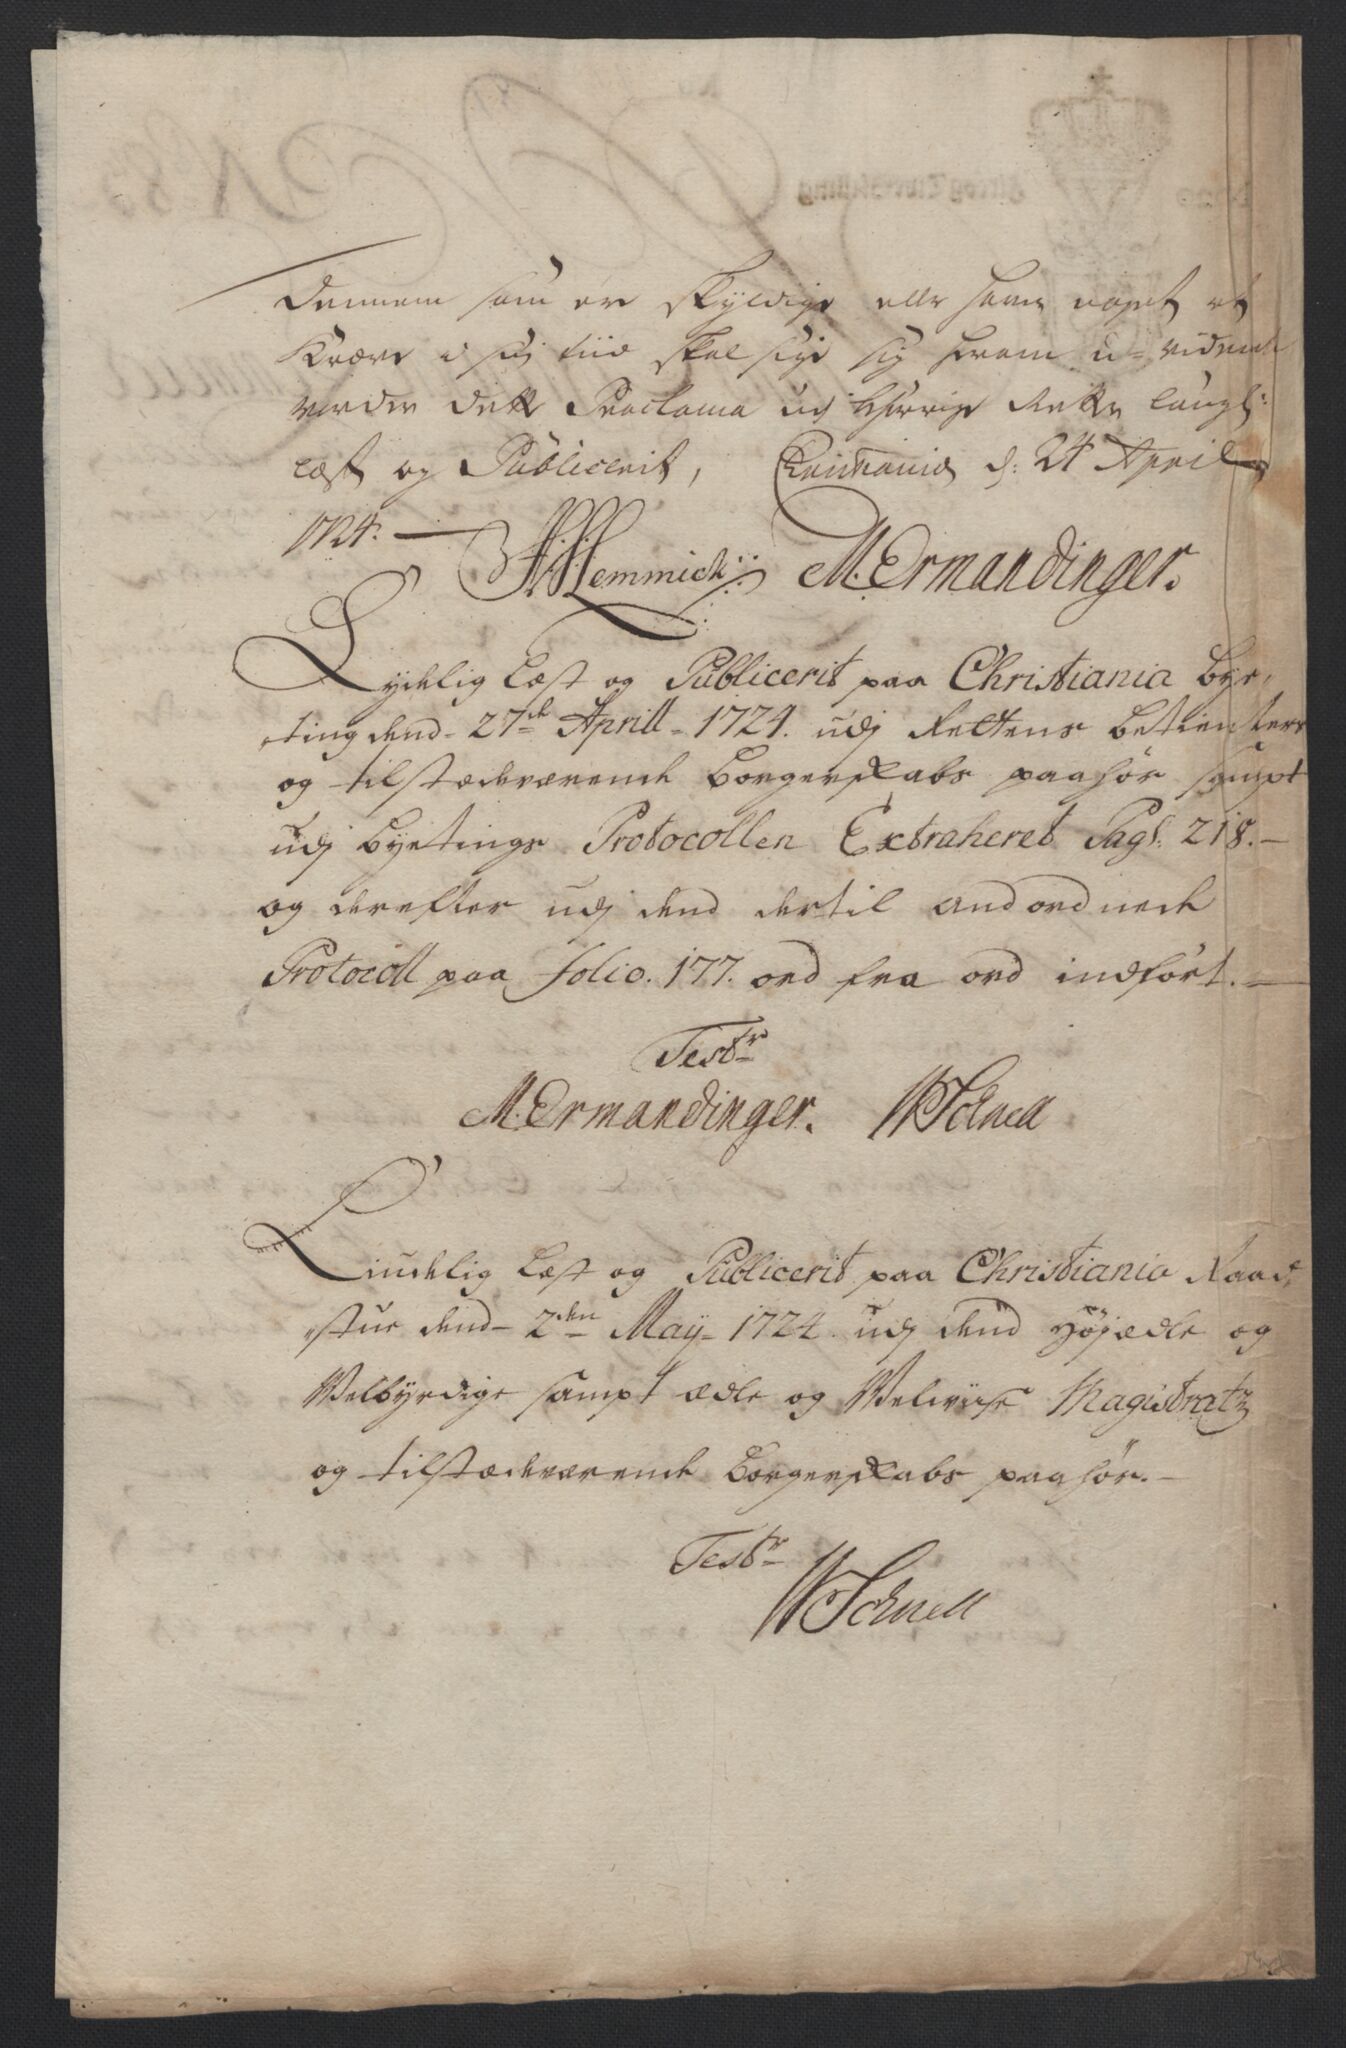 Dennem som er skyldige eller haver noget at
Kræve i sin tiid skal sige sig herom u-vidende
verder dette Proclama udj bÿerige Rette laugl:
læst og Publicerit, Christiania d: 24 April
1724.
H Hemmich M. Ermandinger.
Lydelig Læst og Publicerit paa Christiania Bye-
ting dend 27de Aprill 1724. udj Rettens betienters
og tilstædeværende Borgerskabs paahør sampt
udj byetings Protocollen Extraheret Pag: 218.
og derefter udj dend dertil andordnede
Protocoll paa folio. 177. ord fra ord indført.
Testr
M. Ermandinger. W Schnell
Liudelig Læst og Publicerit paa Christiania Raad-
stue dend 2den Maÿ 1724. udj dend Høÿædle og
Velbÿrdige sampt ædle og Velviise Magistratz
og tilstædeværende Borgerskabs paahør.
Testr
W Schnell